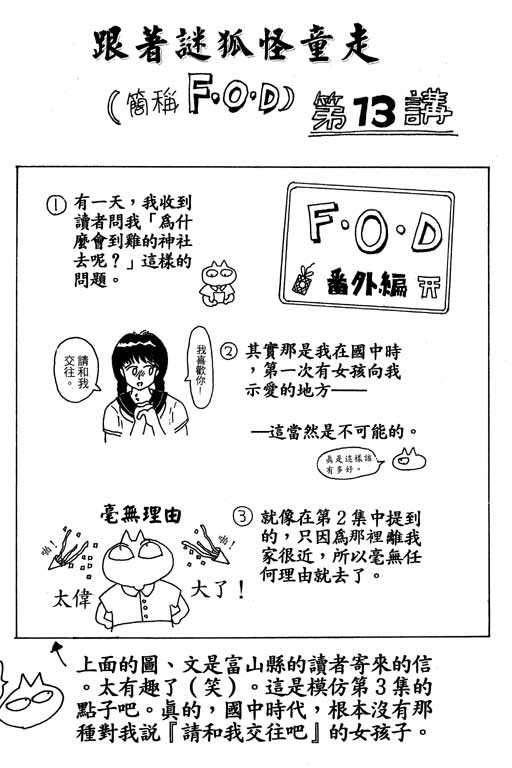 跟著謎狐怪童走
(簡稱F·O·D) 第13講
① 有一天，我收到
讀者問我「爲什
麼會到雞的神社
去呢？」這樣的
問題。
F·O·D
番外編
② 其實那是我在國中時
，第一次有女孩向我
示愛的地方——
我喜歡你！
請和我
交往。
—這當然是不可能的。
真是這樣該
有多好。
③ 就像在第2集中提到
的，只因爲那裡離我
家很近，所以毫無任
何理由就去了。
毫無理由
啪！
啪！
太偉
大了！
上面的圖、文是富山縣的讀者寄來的信
。太有趣了（笑）。這是模仿第3集的
點子吧。真的，國中時代，根本沒有那
種對我說『請和我交往吧』的女孩子。